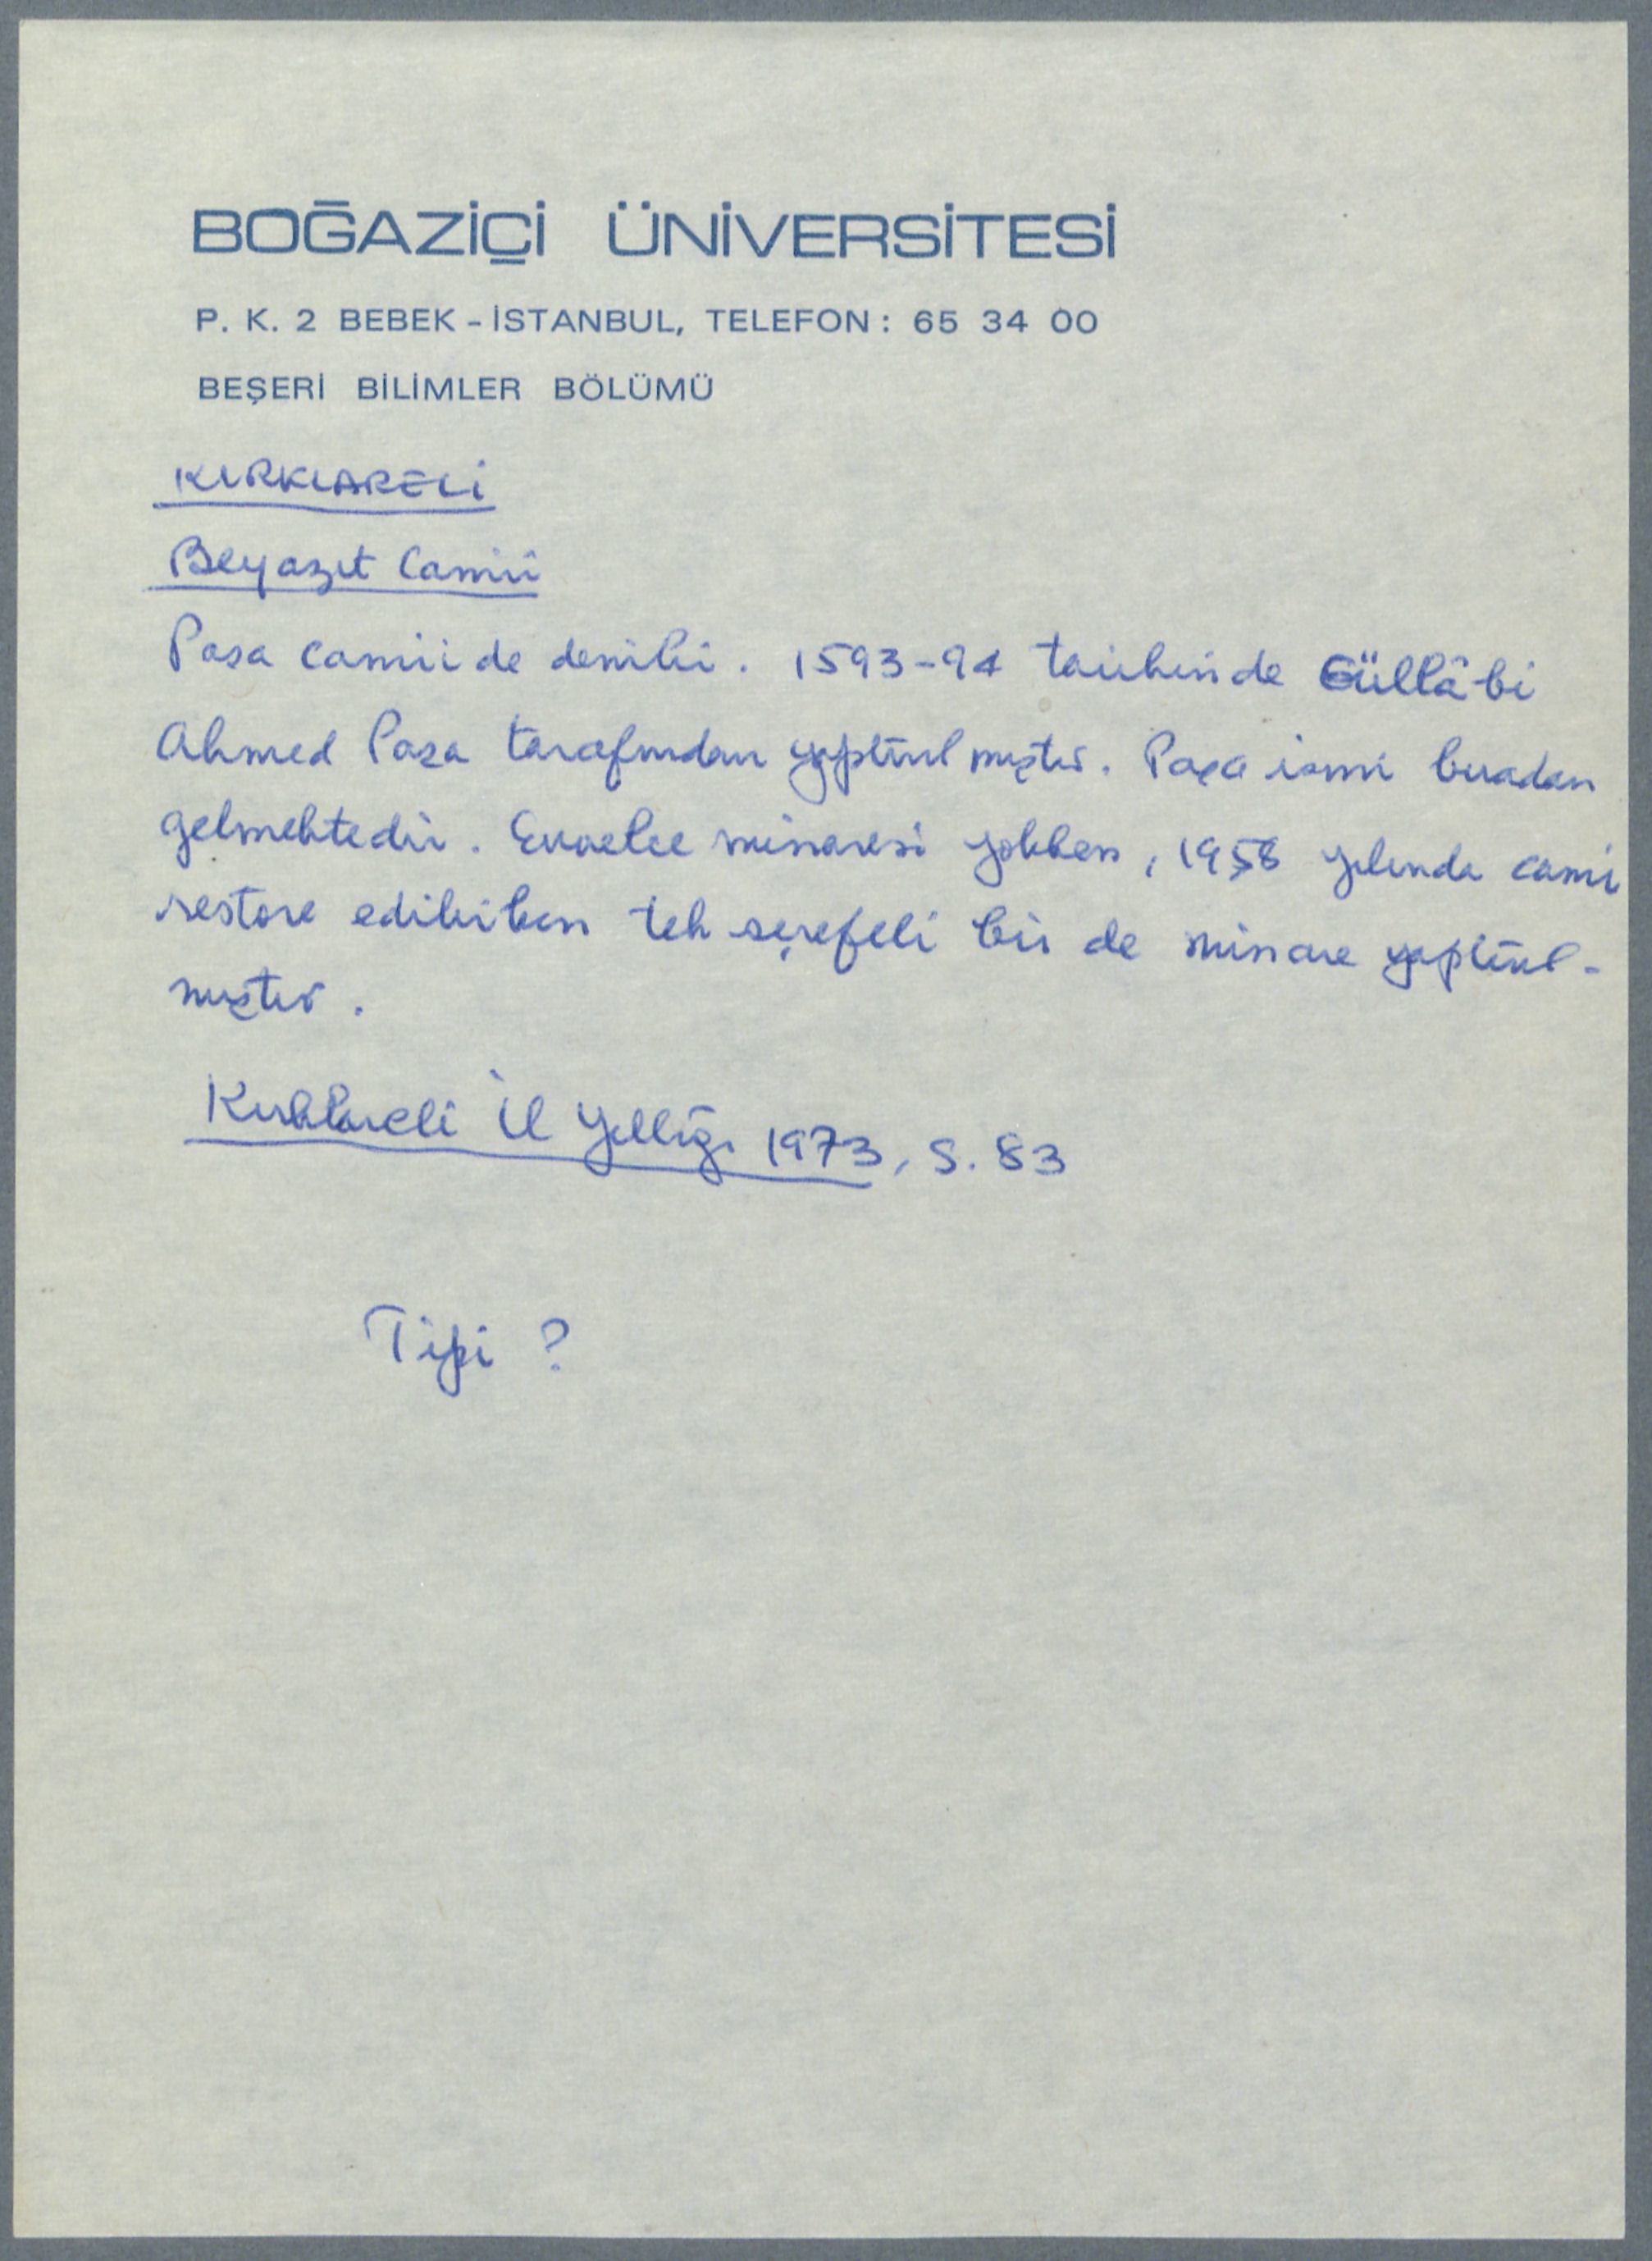 BOĞAZİÇİ ÜNİVERSİTESİ
P. K. 2 BEBEK - İSTANBUL, TELEFON : 65 34 00
BEŞERİ BİLİMLER BÖLÜMÜ
KIRKLARELİ
Beyazıt Camii
Paşa camii de denilir. 1593-94 tarihinde Güllâbi
Ahmed Paşa tarafından yaptırılmıştır. Paşa ismi buradan
gelmektedir. Evvelce minaresi yokken, 1958 yılında cami
restore edilirken tek şerefeli bir de minare yaptırıl-
mıştır.
Kırklareli İl Yıllığı 1973, S. 83
Tipi ?